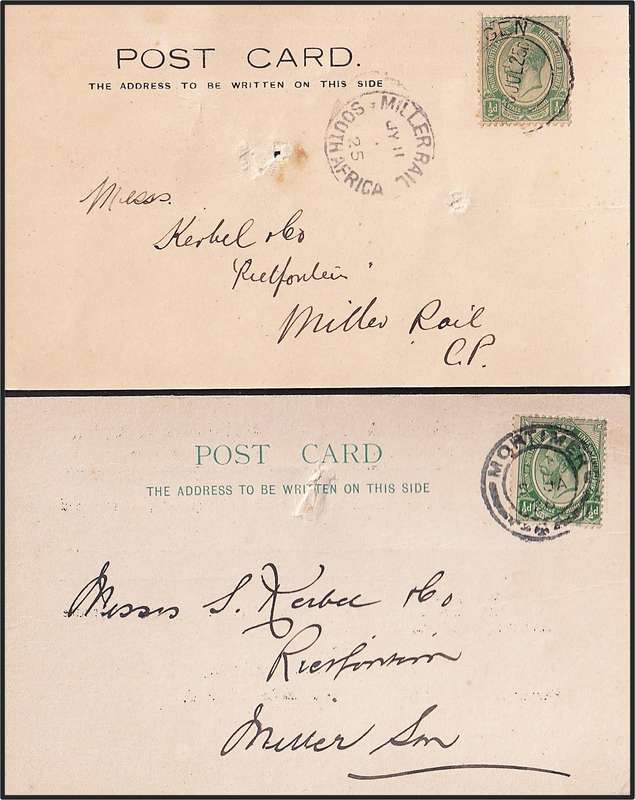 POST CARD.
THE ADDRESS TO BE WRITTEN ON THIS SIDE
GEN
JUL 25
½d
SOUTH AFRICA · MILLER RAIL
JY 11
25
Messs.
Kerbel & Co
"Rietfontein"
Miller Rail
C.P.
POST CARD
THE ADDRESS TO BE WRITTEN ON THIS SIDE
MORTIMER
JA
½d ½d
Messrs S. Kerbel & Co
Rietfontein
Miller Stn